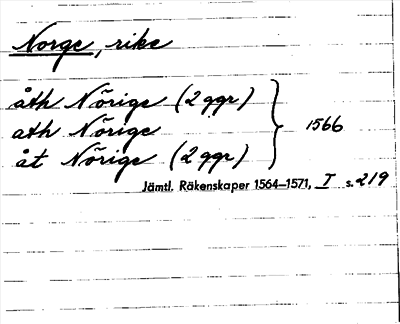 Norge, rike
åth Nõrige (2 ggr)
ath Nõrige
åt Nõrige (2 ggr)
1566
Jämtl. Räkenskaper 1564–1571, I s. 219